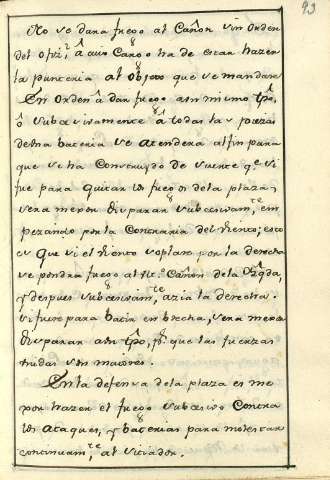 93
No se dara fuego al Cañon sin orden
del ofizl, â cuio Cargo ha de estar hazer
la punteria al objeto que se mandare
En orden â dan fuego a un mismo tpo,
ô subcesivamente â todas las piezas
de una bateria se atendera al fin para
que se ha Construydo de suerte qe. si
fue para quitar los fuegos de la plaza,
sera mejor disparar subcesivamte. em
pezando por la Contraria del viento; esto
es que si el viento soplare por la derecha
se pondra fuego al Cañon de la Yzqda,
y despues subcesivamte. azia la derecha.
Si fuere para batir en brecha, sera mejor
disparar a un tpo, pr. que las fuerzas
unidas son maiores.
En la defensa de la plaza es me
jor hazer el fuego subcesivo Contra
los ataques, y baterias para molestar
continuamte. al sitiador.